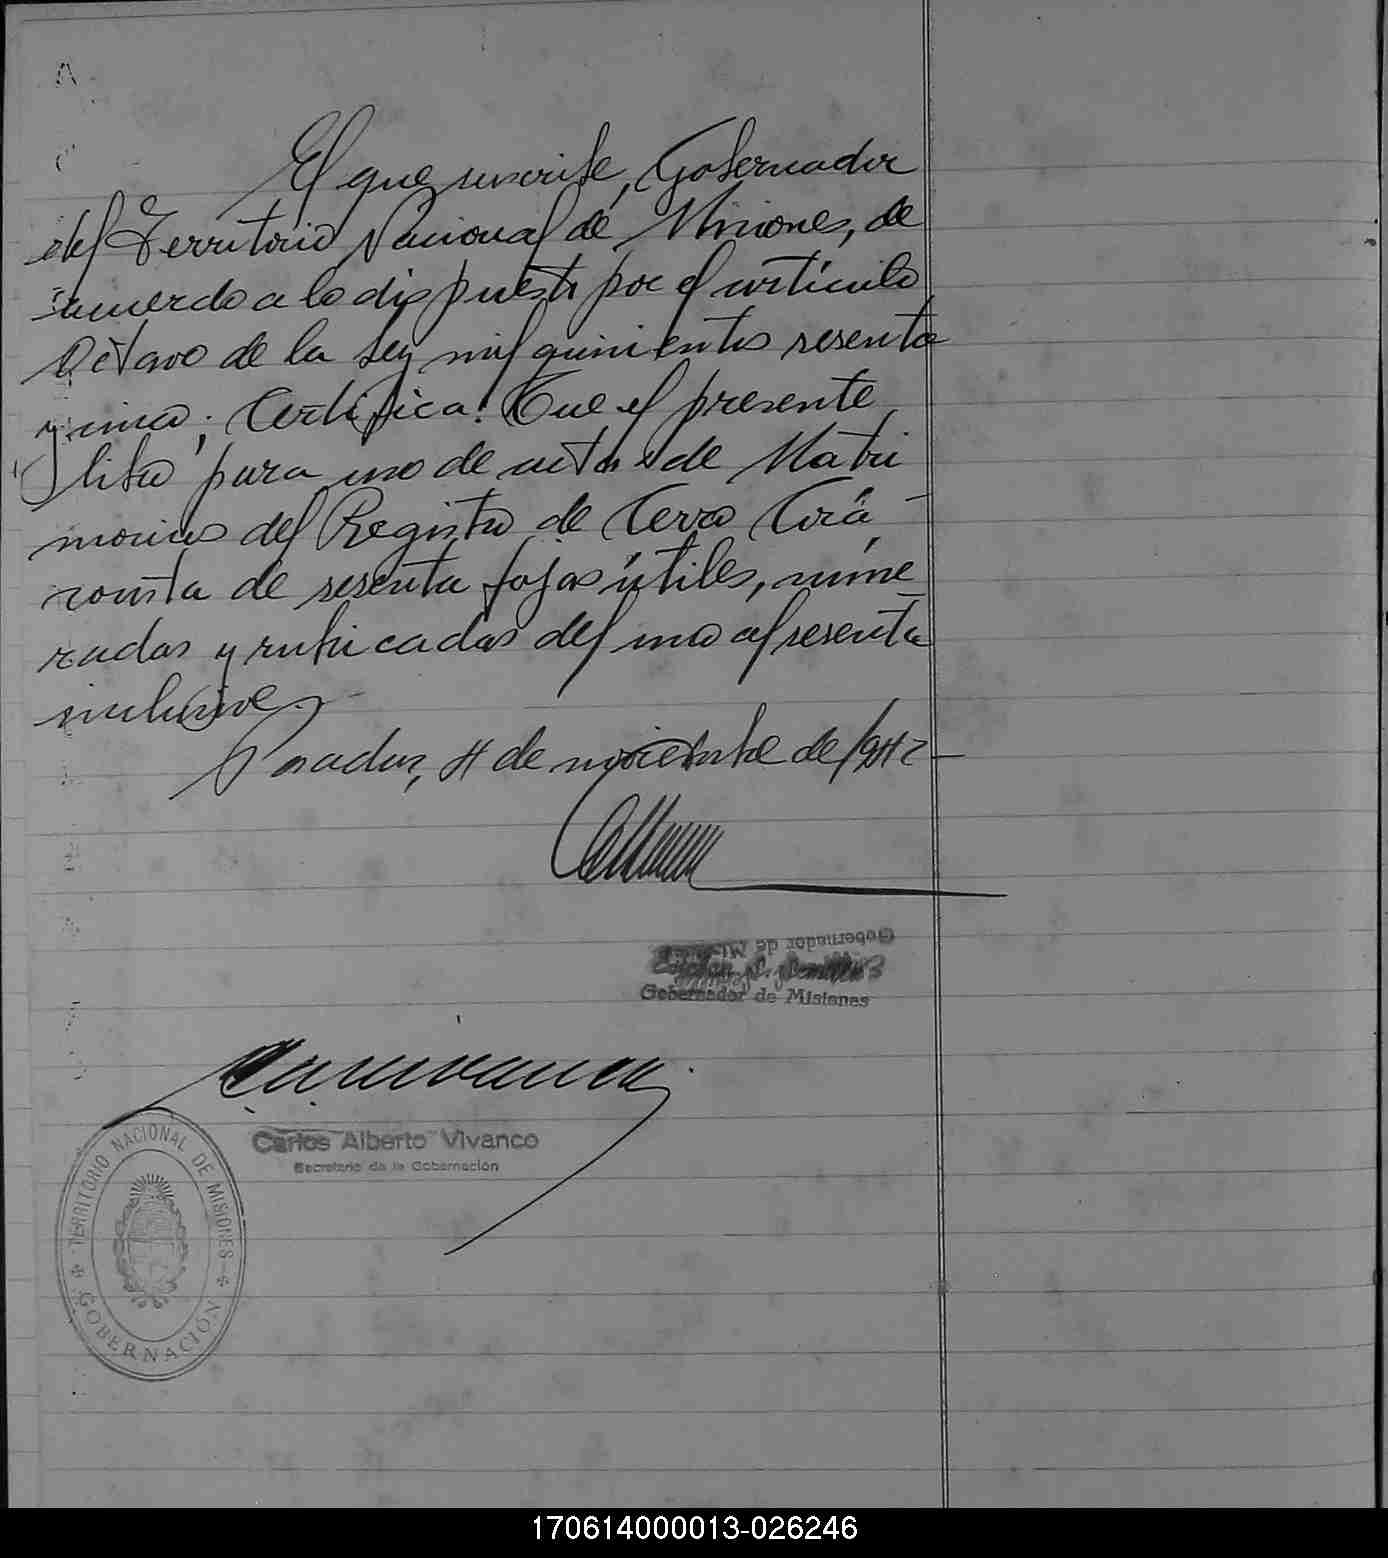 El que suscribe, Gobernador
del Territorio Nacional de Misiones, de
acuerdo a lo dispuesto por el artículo
Octavo de la Ley mil quinientos sesenta
y cinco; Certifica: Que el presente
libro para uso de actas de Matri
monios del Registro de Cerro Corá,
consta de sesenta fojas útiles, nume
radas y rubricadas del uno al sesenta
inclusive.-
Posadas, de noviembre de 1942-
Gobernador de
Gobernador de Misiones
Carlos Alberto Vivanco
Secretario de la Gobernación
TERRITORIO NACIONAL DE MISIONES
GOBERNACIÓN
170614000013-026246